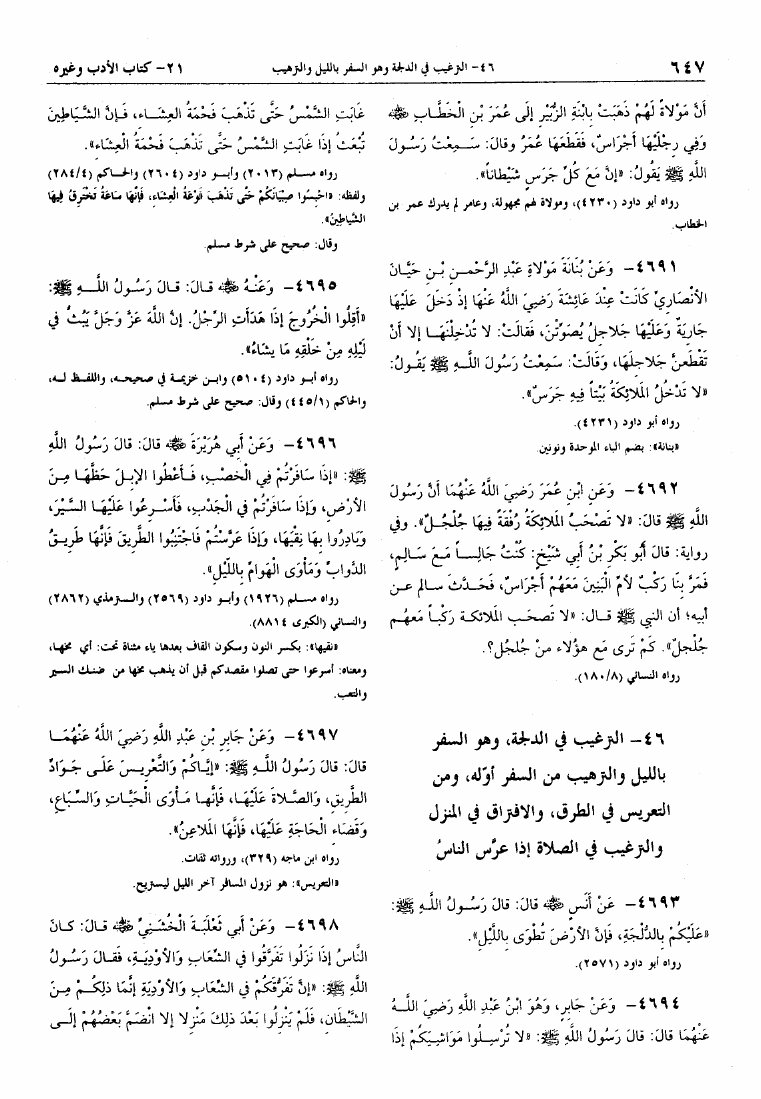 ٦٤٧
٤٦- الترغيب في الدلجة وهو السفر بالليل والترهيب
٢١- كتاب الأدب وغيره
أَنَّ مَوْلاةً لَهُمْ ذَهَبَتْ بِابْنَةِ الزُّبَيْرِ إِلَى عُمَرَ بْنِ الْخَطَّابِ ﷺ
وَفِي رِجْلَيْهَا أَجْرَاسٌ، فَقَطَعَهَا عُمَرُ وقَالَ: سَـمِعْتُ رَسُـولَ
اللهِ ﷺ يَقُولُ: «إِنَّ مَعَ كُلِّ جَرَسٍ شَيْطَاناً».
رواه أبو داود (٤٢٣٠)، ومولاة لهم مجهولة، وعامر لم يدرك عمر بن
الخطاب.
٤٦٩١- وَعَنْ بُنَانَةَ مَوْلاةِ عَبْدِ الرَّحْمـنِ بْـنِ حَيَّـانَ
الأنْصَارِيِّ كَانَتْ عِنْدَ عَائِشَةَ رَضِيَ اللَّهُ عَنْهَا إِذْ دَخَـلَ عَلَيْهَا
جَارِيَةٌ وَعَلَيْهَا جَلاجِلُ يُصَوِّتْنَ، فَقَالَتْ: لا تُدْخِلْنَهَـا إِلا أَنْ
تَقْطَعْنَ جَلاجِلَهَا، وَقَالَتْ: سَمِعْتُ رَسُولَ اللَّـهِ ﷺ يَقُـولُ:
«لا تَدْخُلُ المَلائِكَةُ بَيْتاً فِيهِ جَرَسٌ».
رواه أبو داود (٤٢٣١).
«بنانة»: بضم الباء الموحدة ونونين.
٤٦٩٢- وَعَنِ ابْنِ عُمَرَ رَضِيَ اللَّهُ عَنْهُمَا أَنَّ رَسُولَ
اللهِ ﷺ قَالَ: «لا تَصْحَبُ المَلائِكَةُ رُفْقَةً فِيهَا جُلْجُـلٌ». وفي
رواية: قالَ أَبُو بَكْرِ بْنُ أَبِي شَيْخٍ: كُنْتُ جَالِسـاً مَـعَ سَـالِمٍ،
فَمَرَّ بِنَا رَكْبٌ لأمِّ الْبَنِينَ مَعَهُمْ أَجْرَاسٌ، فَحَـدَّثَ سـالم عـن
أبيه؛ أن النبي ﷺ قـال: «لا تَصحَـب المَلائكـة رَكْبـاً مَعهُـم
جُلْجلٌ». كَمْ تَرى مَع هؤُلاء منْ جُلجُل؟.
رواه النسائي (٨/١٨٠).
٤٦- الترغيب في الدلجة، وهو السفر
بالليل والترهيب من السفر أوّله، ومن
التعريس في الطرق، والافتراق في المنزل
والترغيب في الصلاة إذا عرّس الناسُ
٤٦٩٣- عَنْ أَنَسٍ ﷺ قَالَ: قَالَ رَسُـولُ اللَّـهِ ﷺ:
«عَلَيْكُمْ بِالدُّلْجَةِ، فَإِنَّ الأرْضَ تُطْوَى بِاللَّيْلِ».
رواه أبو داود (٢٥٧١).
٤٦٩٤- وَعَنْ جَابِرٍ، وَهُوَ ابْنُ عَبْدِ اللهِ رَضِيَ اللَّـهُ
عَنْهُمَا قَالَ: قَالَ رَسُولُ اللَّهِ ﷺ: «لا تُرْسِـلُوا مَوَاشِـيَكُمْ إِذَا
غَابَتِ الشَّمْسُ حَتَّى تَذْهَبَ فَحْمَةُ العِشَـاءِ، فَـإِنَّ الشَّـيَاطِينَ
تُبْعَثُ إِذَا غَابَتِ الشَّمْسُ حَتَّى تَذْهَبَ فَحْمَةُ الْعِشَاءِ».
رواه مسـلم (٢٠١٣) وأبـو داود (٢٦٠٤) والحـاكم (٤/٢٨٤)
ولفظه: «احْبِسُوا صِبْيَانَكُمْ حَتَّى تَذْهَبَ فَوْعَةُ الْعِشَاءِ، فَإِنَّهَا سَاعَةٌ تَخْتَرِقُ فِيهَا
الشَّيَاطِينُ».
وقال: صحيح على شرط مسلم.
٤٦٩٥- وَعَنْـهُ ﷺ قَـالَ: قَـالَ رَسُـولُ اللَّــهِ ﷺ:
«أَقِلُّوا الْخُرُوجَ إِذَا هَدَأَتِ الرِّجْلُ. إِنَّ اللَّهَ عَزَّ وَجَلَّ يَبُثُّ فِي
لَيْلِهِ مِنْ خَلْقِهِ مَا يَشَاءُ».
رواه أبـو داود (٥١٠٤) وابـن خزيمـة في صحيحـه، واللفـظ لـه،
والحاكم (١/٤٤٥) وقال: صحيح على شرط مسلم.
٤٦٩٦- وَعَنْ أَبِي هُرَيْرَةَ ﷺ قَالَ: قَالَ رَسُولُ اللَّهِ
ﷺ: «إِذَا سَافَرْتُمْ فِي الْخَصْبِ، فَـأَعْطُوا الإبِـلَ حَظَّهَـا مِـنَ
الأرْضِ، وَإِذَا سَافَرْتُمْ فِي الْجَدْبِ، فَأَسْـرِعُوا عَلَيْهَـا السَّـيْرَ،
وَبَادِرُوا بِهَا نِقْيَهَا، وَإِذَا عَرَّسْتُمْ فَاجْتَنِبُوا الطَّرِيقَ فَإِنَّهَا طَرِيـقُ
الدَّوَابِّ وَمَأْوَى الْهَوَامِّ بِاللَّيْلِ».
رواه مسـلم (١٩٢٦) وأبـو داود (٢٥٦٩) والـترمذي (٢٨٦٢)
والنسائي (الكبرى ٨٨١٤).
«نقيها»: بكسر النون وسكون القاف بعدها ياء مثناة تحت: أي مخها،
ومعناه: أسرعوا حتى تصلوا مقصدكم قبل أن يذهب مخها من ضنـك السير
والتعب.
٤٦٩٧- وَعَنْ جَابِرِ بْنِ عَبْدِ اللهِ رَضِيَ اللَّهُ عَنْهُمَـا
قَالَ: قَالَ رَسُولُ اللَّـهِ ﷺ: «إِيَّـاكُمْ وَالتَّعْرِيـسَ عَلَـى جَـوَادِّ
الطَّرِيقِ، وَالصَّـلاةَ عَلَيْهَـا، فَإِنَّهَـا مَـأْوَى الْحَيَّـاتِ وَالسِّـبَاعِ،
وَقَضَاءَ الْحَاجَةِ عَلَيْهَا، فَإِنَّهَا المَلاعِنُ».
رواه ابن ماجه (٣٢٩)، ورواته ثقات.
«التعريس»: هو نزول المسافر آخر الليل ليستريح.
٤٦٩٨- وَعَنْ أَبِي ثَعْلَبَةَ الْخُشَنِيِّ ﷺ قَالَ: كَـانَ
النَّاسُ إِذَا نَزَلُوا تَفَرَّقُوا فِي الشِّعَابِ وَالأوْدِيَـةِ، فَقَـالَ رَسُـولُ
اللهِ ﷺ: «إِنَّ تَفَرُّقَكُمْ فِي الشِّعَابِ وَالأوْدِيَةِ إِنَّمَا ذلِكُـمْ مِـنَ
الشَّيْطَانِ، فَلَمْ يَنْزِلُوا بَعْدَ ذلِكَ مَنْزِلا إِلا انْضَمَّ بَعْضُهُمْ إِلَـى